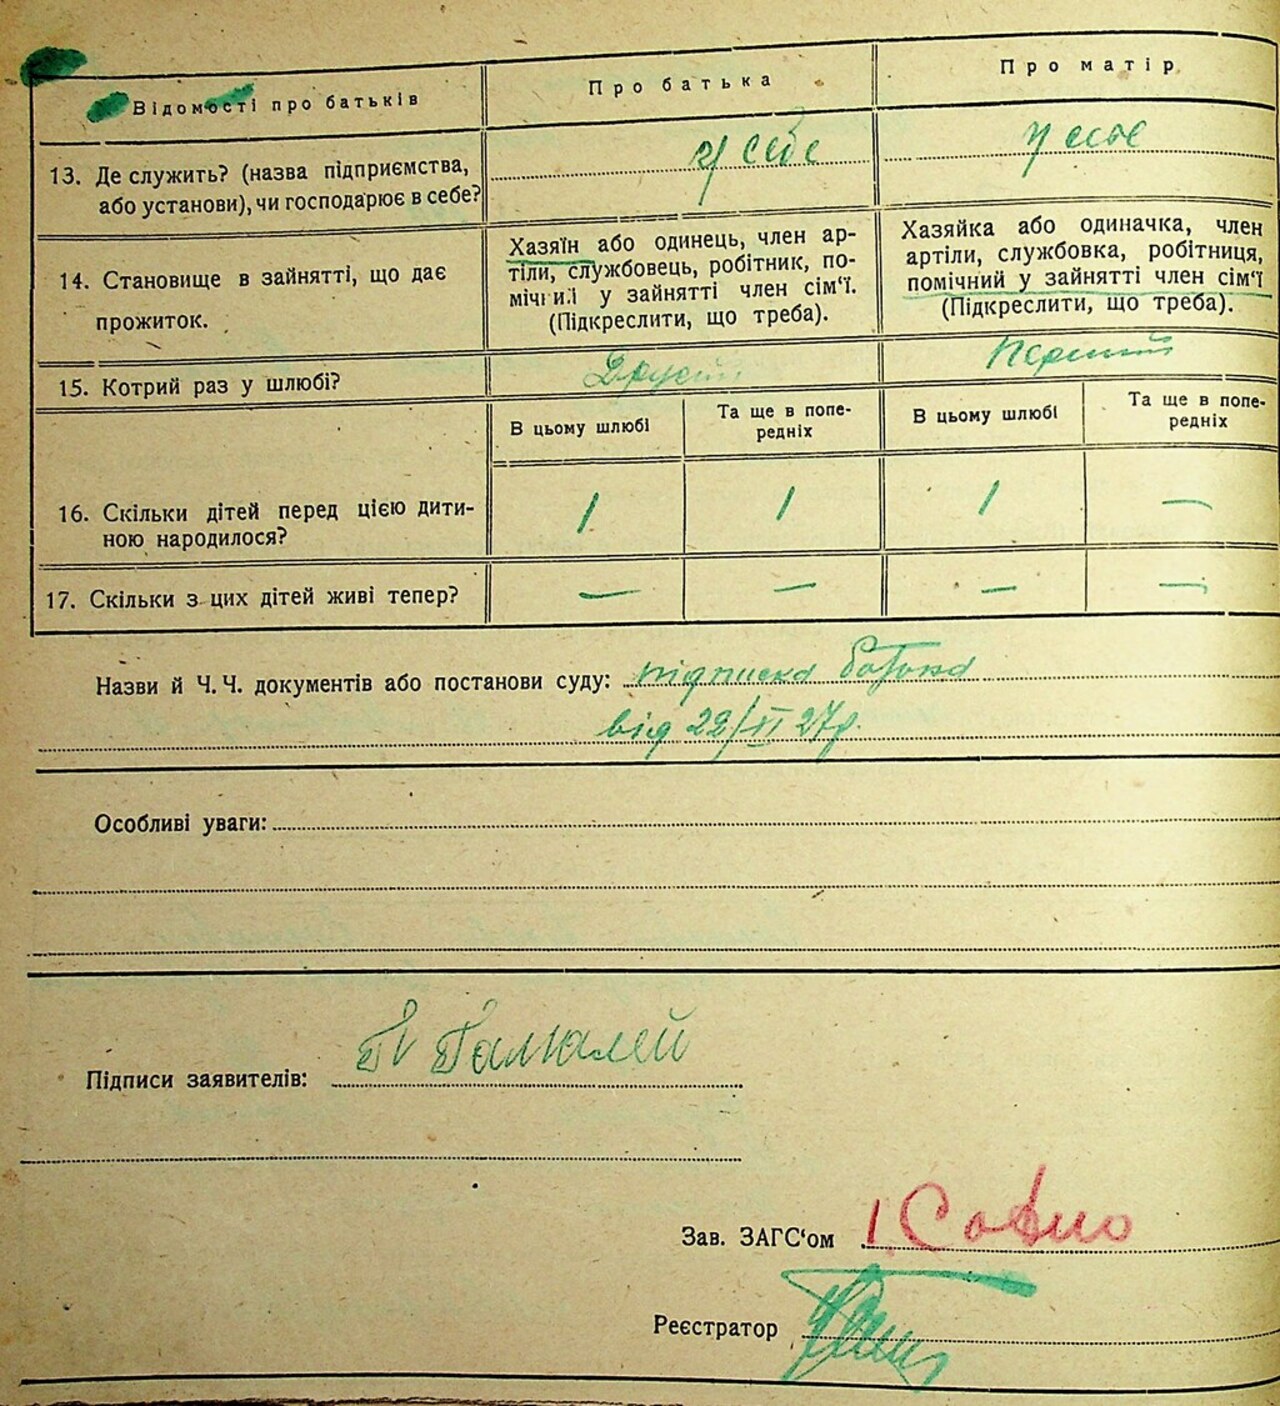 Відомості про батьків
Про батька
Про матір
13. Де служить? (назва підприємства,
або установи), чи господарює в себе?
у себе
у себе
14. Становище в зайнятті, що дає
прожиток.
Хазяїн або одинець, член ар-
тіли, службовець, робітник, по-
мічний у зайнятті член сім‘ї.
(Підкреслити, що треба).
Хазяйка або одиначка, член
артіли, службовка, робітниця,
помічний у зайнятті член сім‘ї
(Підкреслити, що треба).
15. Котрий раз у шлюбі?
Другий
Перший
16. Скільки дітей перед цією дити-
ною народилося?
В цьому шлюбі
Та ще в попе-
редніх
В цьому шлюбі
Та ще в попе-
редніх
1
1
1
—
17. Скільки з цих дітей живі тепер?
—
—
—
—
Назви й Ч. Ч. документів або постанови суду: підписка батька
від 22/XI 27р.
Особливі уваги:
Підписи заявителів:
Зав. ЗАГС‘ом
Реєстратор